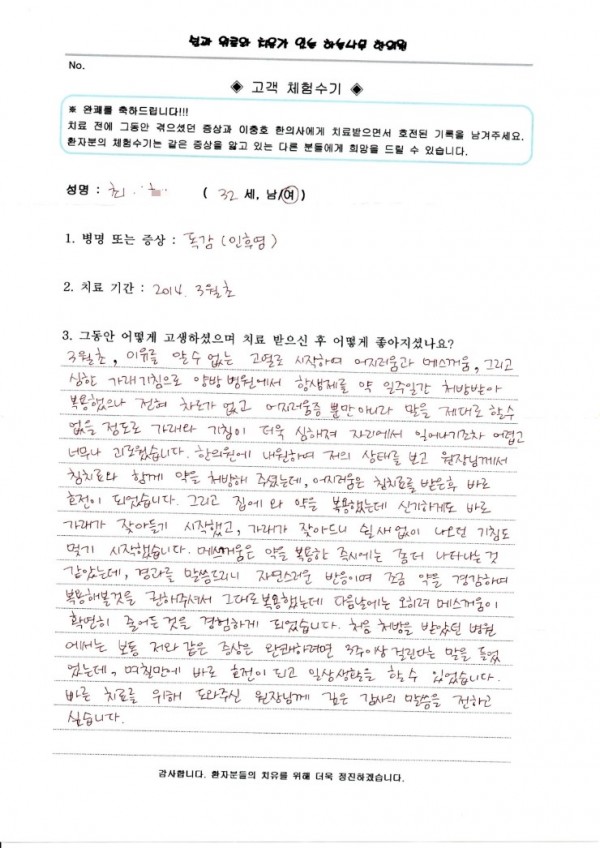 No.
◈ 고객 체험수기 ◈
※ 완쾌를 축하드립니다!!!
치료 전에 그동안 겪으셨던 증상과 이충호 한의사에게 치료받으면서 호전된 기록을 남겨주세요.
환자분의 체험수기는 같은 증상을 앓고 있는 다른 분들에게 희망을 드릴 수 있습니다.
성명 : 최 ( 32 세, 남/여)
1. 병명 또는 증상 : 독감 (인후염)
2. 치료 기간 : 2014. 3월초
3. 그동안 어떻게 고생하셨으며 치료 받으신 후 어떻게 좋아지셨나요?
3월초, 이유를 알 수 없는 고열로 시작하여 어지러움과 메스꺼움, 그리고
심한 가래기침으로 양방 병원에서 항생제를 약 일주일간 처방받아
복용했으나 전혀 차도가 없고 어지러움증 뿐만 아니라 말을 제대로 할수
없을 정도로 가래와 기침이 더욱 심해져 자리에서 일어나기조차 어렵고
너무나 괴로웠습니다. 한의원에 내원하여 저의 상태를 보고 원장님께서
침치료와 함께 약을 처방해 주셨는데, 어지러움은 침치료를 받은후 바로
호전이 되었습니다. 그리고 집에 와 약을 복용했는데 신기하게도 바로
가래가 잦아들기 시작했고, 가래가 잦아드니 쉴새없이 나오던 기침도
멎기 시작했습니다. 메스꺼움은 약을 복용한 즉시에는 좀더 나타나는것
같았는데, 경과를 말씀드리니 자연스러운 반응이며 조금 약을 경감하여
복용해볼것을 권해주셔서 그대로 복용했는데 다음날에는 오히려 메스꺼움이
확연히 줄어든것을 경험하게 되었습니다. 처음 처방을 받았던 병원
에서는 보통 저와같은 증상은 완쾌하려면 3주이상 걸린다는 말을 들었
었는데, 며칠만에 바로 호전이 되고 일상생활을 할 수 있었습니다.
바른 치료를 위해 도와주신 원장님께 깊은 감사의 말씀을 전하고
싶습니다.
감사합니다. 환자분들의 치유를 위해 더욱 정진하겠습니다.